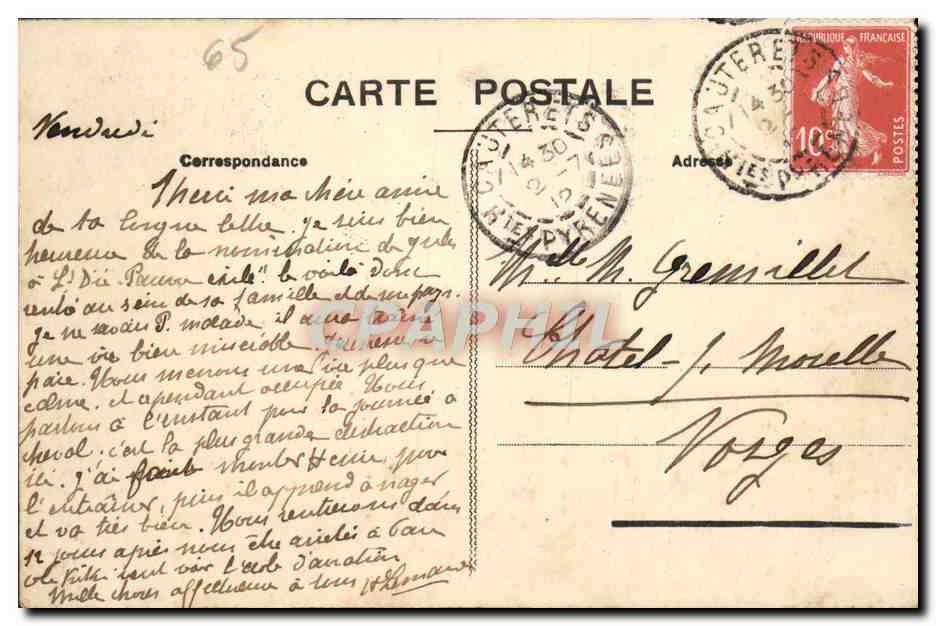 65
CARTE POSTALE
RÉPUBLIQUE FRANÇAISE
10c
POSTES
CAUTERETS
14 30
2 -7
12
HTES PYRENEES
CAUTERETS
14 30
HTES PYRENEES
Vendredi
Correspondance
Adresse
Merci ma chère amie
de ta longue lettre. Je suis bien
heureuse de la nomination de Jules
à St Dié. Pauvre exilé" le voilà donc
rentré au sein de sa famille et de son pays.
Je ne savais P. malade, il aura traîné
une vie bien misérable
paix. Nous menons une vie plus que
calme, et cependant occupée. Nous
partons à l'instant pour la journée à
cheval. c'est la plus grande distraction
ici. J'ai fait monter Henri pour
l'entraîner, puis il apprend à nager
et va très bien. Nous rentrerons dans
12 jours après nous être arrêtés à Pau
où Kiki veut voir l'école d'aviation
Mille choses affectueuses à tous
Melle M. Gremillet
Châtel s/ Moselle
Vosges
CPAPHIL